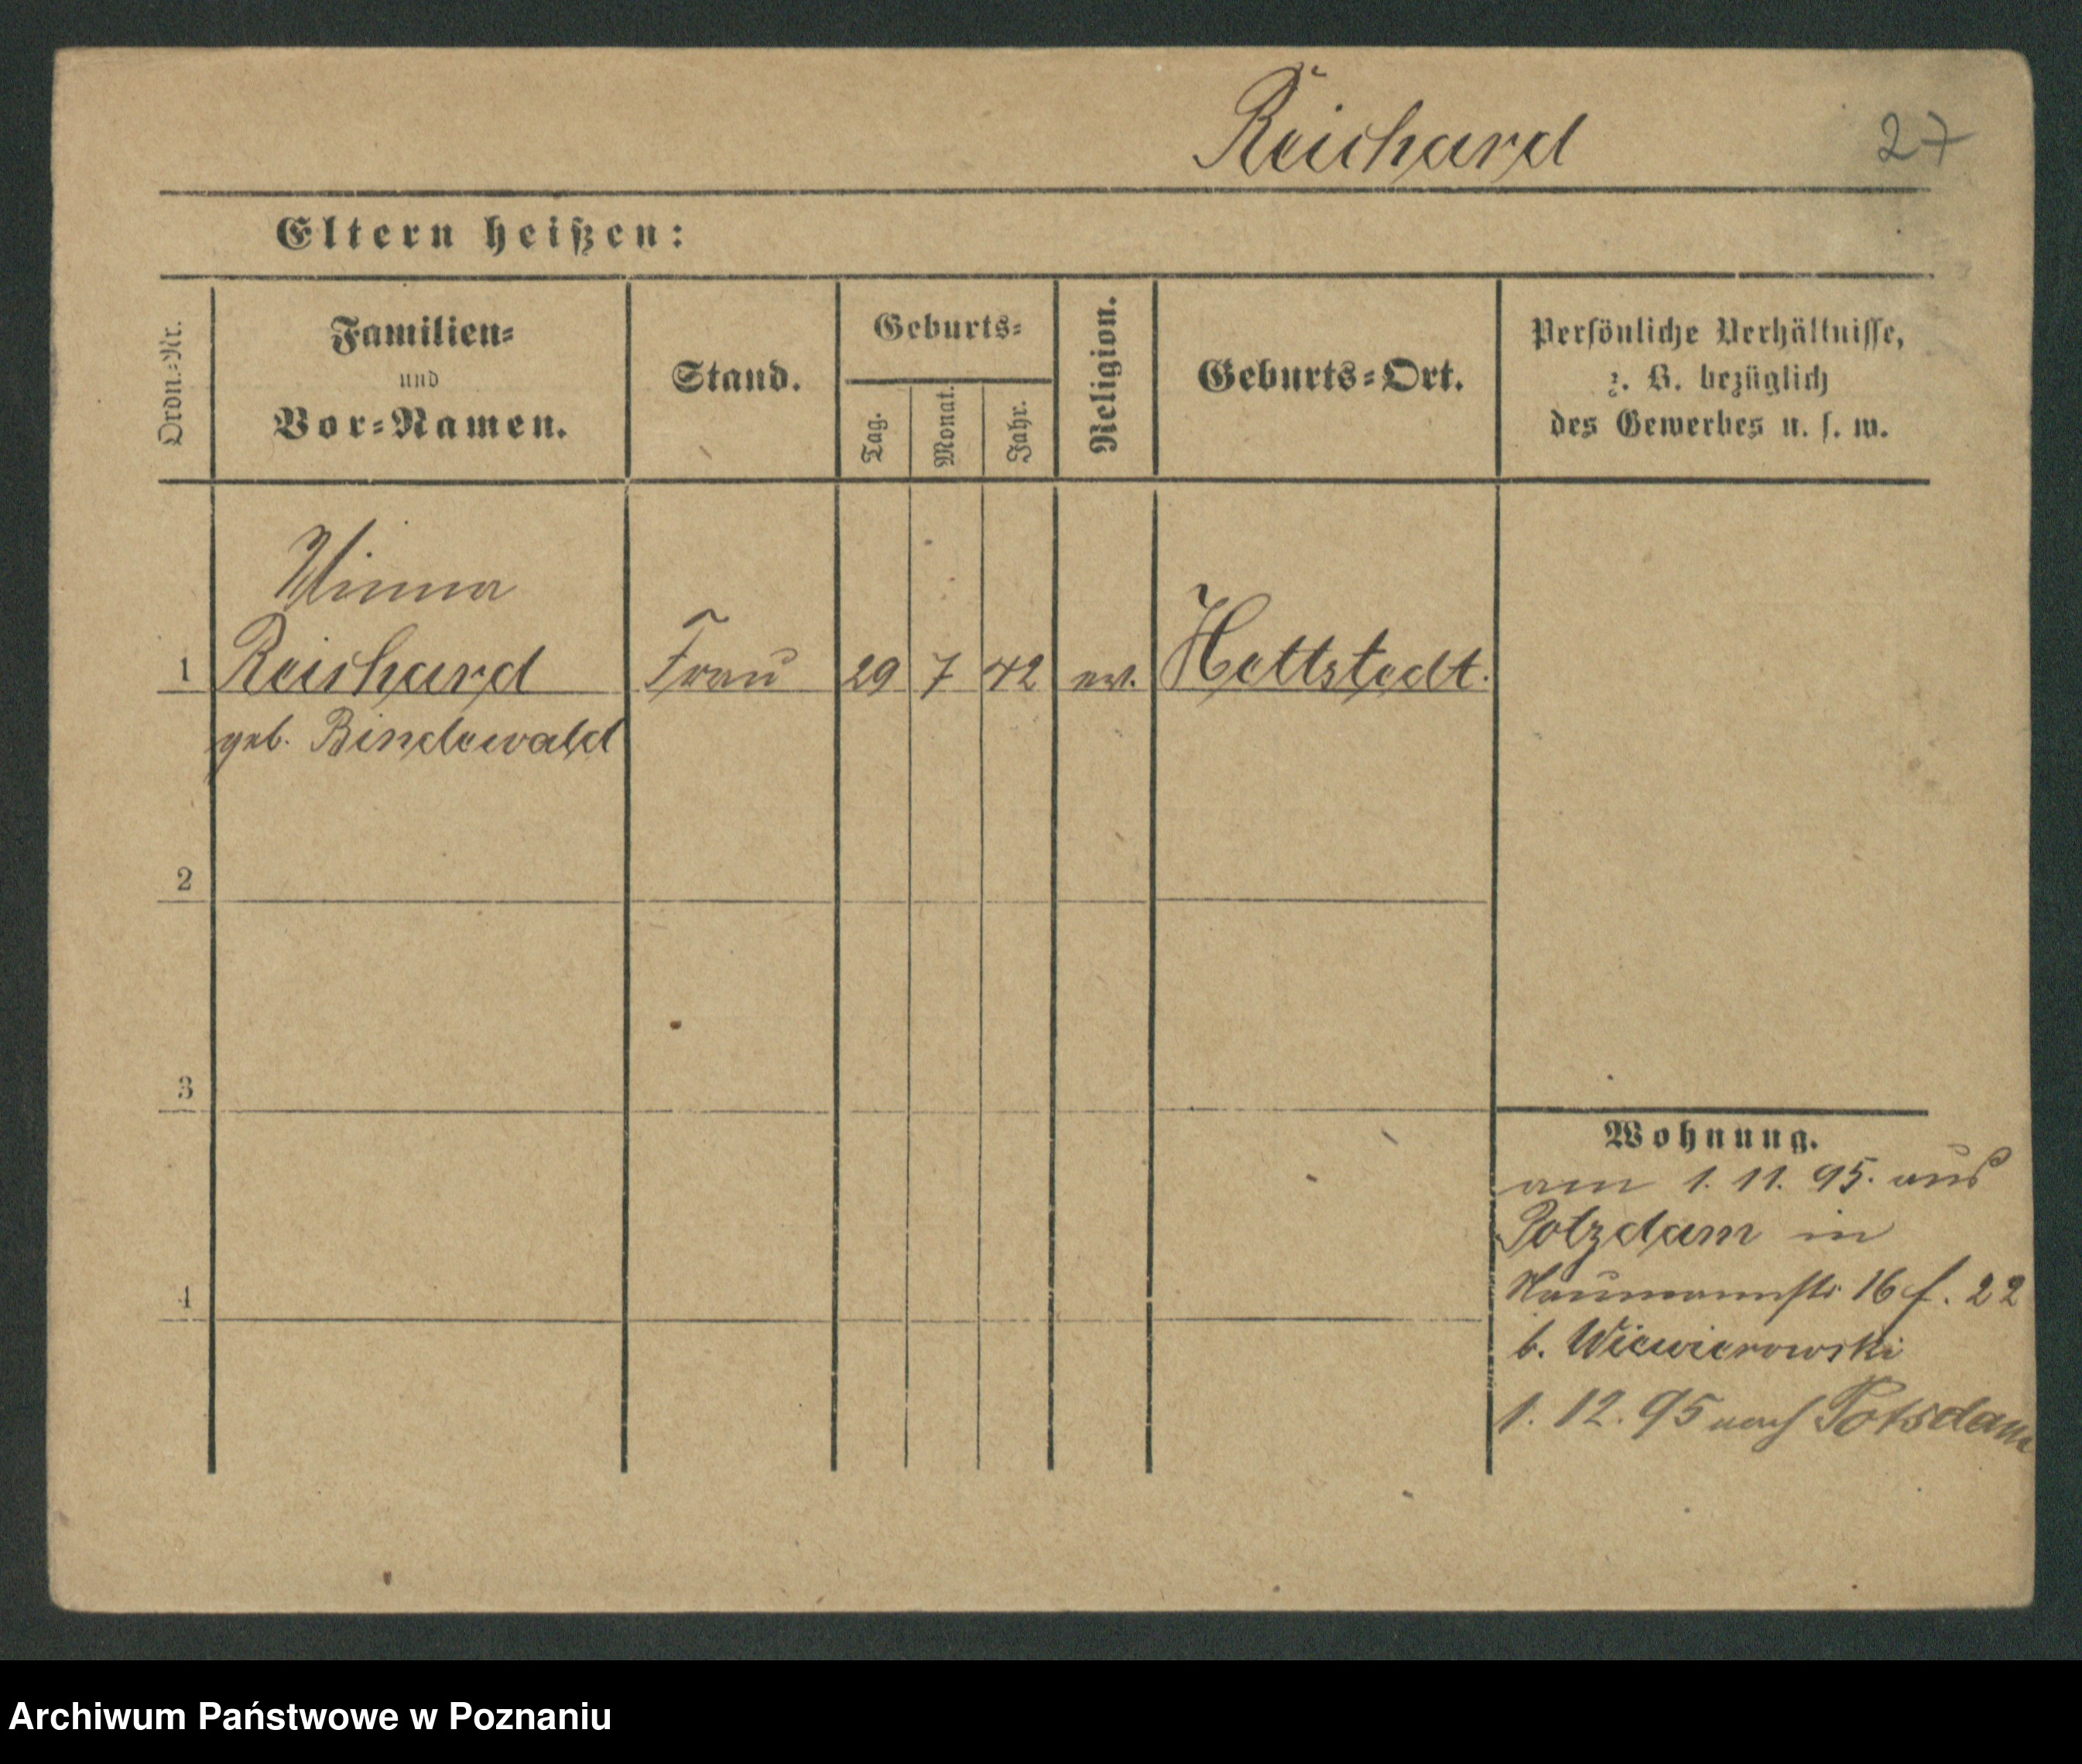 Reichard
27
Eltern heißen:
Ordn.-Nr.
Familien-
und
Vor-Namen.
Stand.
Geburts-
Tag.
Monat.
Jahr.
Religion.
Geburts-Ort.
Persönliche Verhältnisse,
z. B. bezüglich
des Gewerbes u. s. w.
Minna
1 Reichard Frau 29 7 42 ev. Hettstedt.
geb. Bindewald
2
3
4
Wohnung.
am 1. 11. 95. aus
Potzdam in
Naumannstr 16 f. 22
b. Wiewierowski
1. 12. 95 nach Potsdam
Archiwum Państwowe w Poznaniu